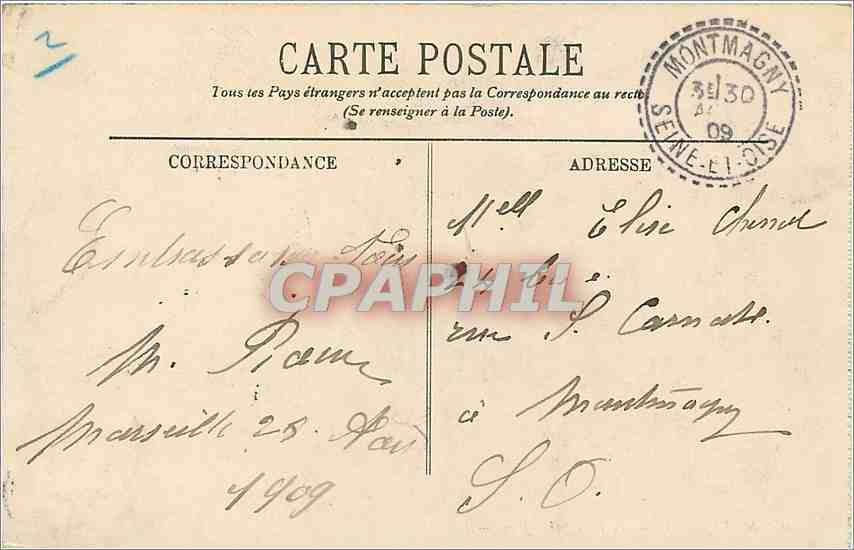 2
CARTE POSTALE
Tous les Pays étrangers n'acceptent pas la Correspondance au recto
(Se renseigner à la Poste).
MONTMAGNY
30
09
SEINE-ET-OISE
CORRESPONDANCE
ADRESSE
M.
Marseille 28 Août
1909
Mell Elise
rue S. Carnot.
à Montmagny
S. O.
CPAPHIL